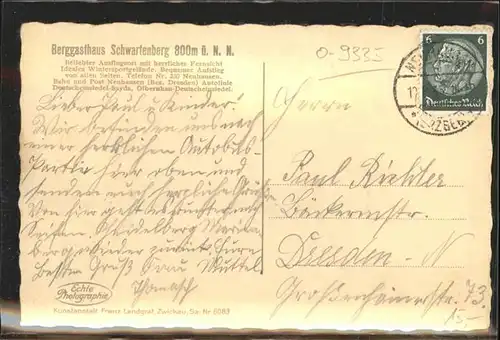 Berggasthaus Schwartenberg 800m ü. N. N.
Beliebter Ausflugsort mit herrlicher Fernsicht
Ideales Wintersportgelände. Bequemer Aufstieg
von allen Seiten. Telefon Nr. 230 Neuhausen.
Bahn und Post Neuhausen (Bez. Dresden) Autolinie
Deutscheinsiedel-Sayda, Olbernhau-Deutscheinsiedel.
O-9335
6 6
Deutsches Reich
(ERZGEB
Lieber Paul u. Kinder!
Wir befinden uns nach
einer herrlichen Autobus-
Partie hier oben und
senden euch herzliche Grüße
Von hier geht es
Seiffen. Heidelberg Marien-
berg wieder zurück. Eure
besten Grüß Frau Muttel
Herrn
Paul Richter
Bäckermstr.
Dresden-N
Großenhainerstr. 73.
15,-
Echte
Photographie
Kunstanstalt Franz Landgraf, Zwickau, Sa. Nr 6083